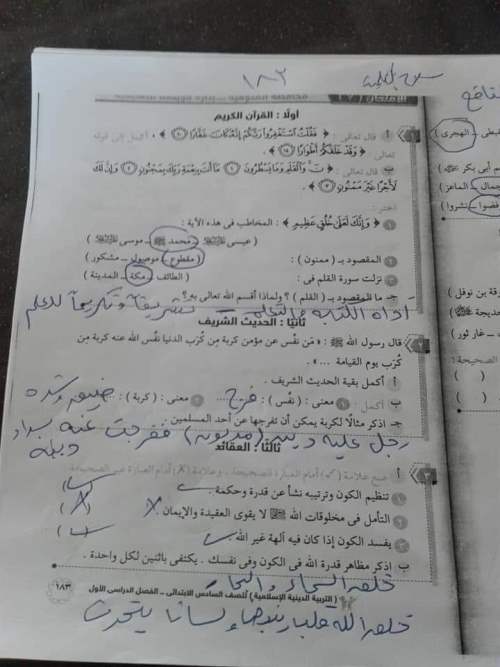 ١٨٣
قبطى ـ الهجرى
أولًا : القرآن الكريم
١ أ قال تعالى : ﴿ فَقُلْتُ ٱسْتَغْفِرُوا۟ رَبَّكُمْ إِنَّهُۥ كَانَ غَفَّارًا ١٠ ﴾ ، أكمل إلى قوله
تعالى : ﴿ وَقَدْ خَلَقَكُمْ أَطْوَارًا ١٤ ﴾ .
ب قال تعالى : ﴿ نٓ وَٱلْقَلَمِ وَمَا يَسْطُرُونَ ١ مَآ أَنتَ بِنِعْمَةِ رَبِّكَ بِمَجْنُونٍ ٢ وَإِنَّ لَكَ
لَأَجْرًا غَيْرَ مَمْنُونٍ ٣ ﴾ .
اختر :
١ ﴿ وَإِنَّكَ لَعَلَىٰ خُلُقٍ عَظِيمٍ ﴾ : المخاطب فى هذه الآية :
( عيسى ﷺ ـ محمد ﷺ ـ موسى ﷺ )
٢ المقصود بـ ( ممنون ) : ( مقطوع ـ موصول ـ مشكور )
٣ نزلت سورة القلم فى : ( الطائف ـ مكة ـ المدينة )
جـ ما المقصود بـ ( القلم ) ؟ ولماذا أقسم الله تعالى به ؟
أداة الكتابة تشريفا وتكريما للعلم
ثانيًا : الحديث الشريف
٢ قال رسول الله ﷺ : « مَن نفَّس عن مؤمن كربة مِن كُرَب الدنيا نفَّس الله عنه كربة مِن
كُرَب يوم القيامة ... » .
أ أكمل بقية الحديث الشريف .
ب أكمل : ١ معنى : ( نفَّس ) : فرج ٢ معنى : ( كربة ) : ضيق وشدة
جـ اذكر مثالًا لكربة يمكن أن تفرجها عن أحد المسلمين .
رجل عليه دين (مديون) ففرجت عنه بسداد
دينه
ثالثًا : العقائد
٣ أ ضع علامة (✓) أمام العبارة الصحيحة ، وعلامة (X) أمام العبارة غير الصحيحة
١ تنظيم الكون وترتيبه نشأ عن قدرة وحكمة .
٢ التأمل فى مخلوقات الله ﷺ لا يقوى العقيدة والإيمان . X
٣ يفسد الكون إذا كان فيه آلهة غير الله
ب اذكر مظاهر قدرة الله فى الكون وفى نفسك . يكتفى باثنين لكل واحدة .
خلق السماء والبحار
١٨٣ ( التربية الدينية الإسلامية ) للصف السادس الابتدائى ـ الفصل الدراسى الأول
خلق الله قلبا ينبض ولسانا يتحدث